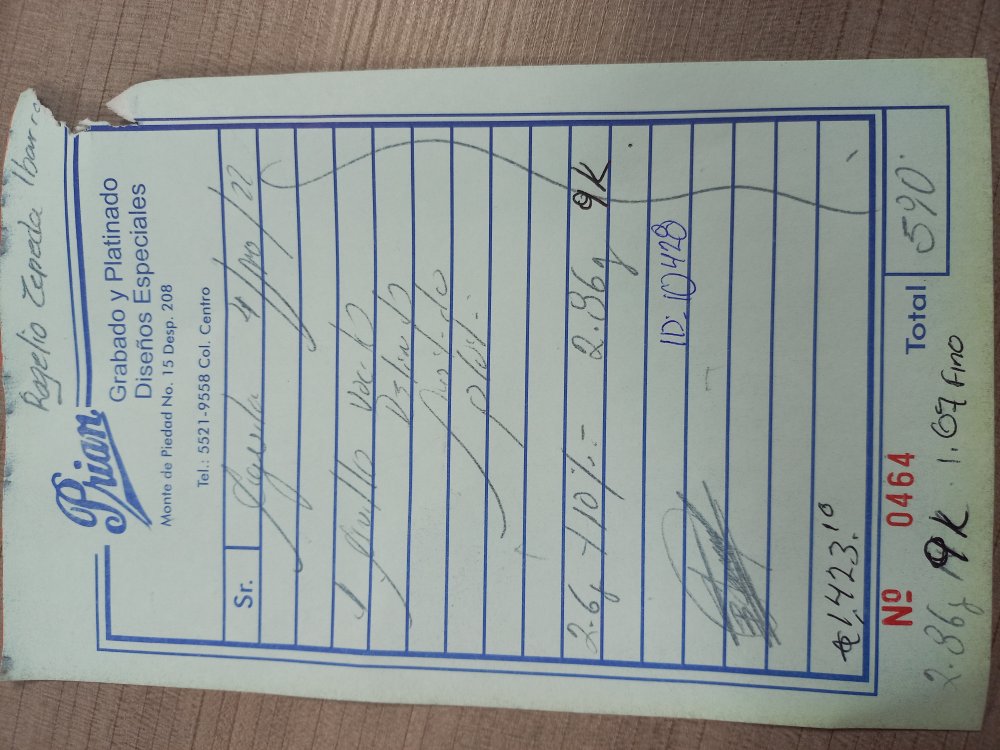 Rogelio Zepeda Ibarra
Prian
Grabado y Platinado
Diseños Especiales
Monte de Piedad No. 15 Desp. 208
Tel.: 5521-9558 Col. Centro
Sr.
1 Anillo
2.6g +10%.- 2.86g 9K
ID: 10428
1,423.10
Total 590.
Nº 0464
2.86g 9K 1.07 Fino